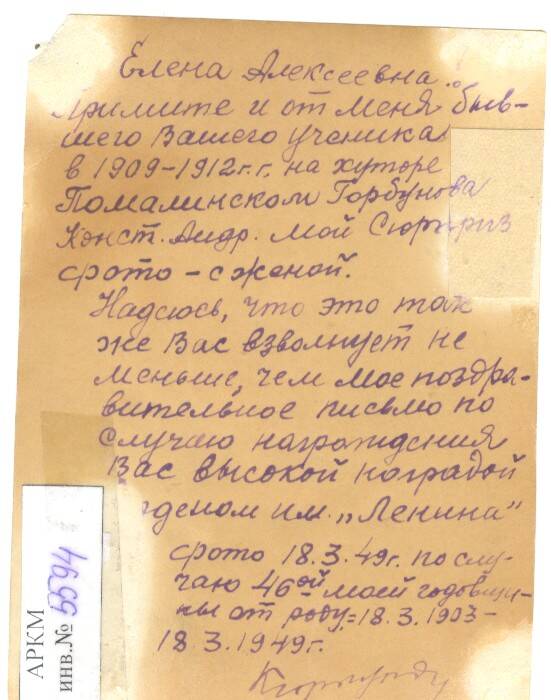 Елена Алексеевна!
Примите и от меня быв-
шего Вашего ученика
в 1909-1912г.г. на хуторе
Помалинском Горбунова
Конст. Андр. мой Сюрприз
фото - с женой.
Надеюсь, что это так
же Вас взволнует не
меньше, чем мое поздра-
вительное письмо по
случаю награждения
Вас высокой наградой
рденом им. „Ленина"
фото 18.3.49г. по слу-
чаю 46ой моей годовщи-
ны от роду: 18.3.1903-
18.3.1949г.
АРКМ
инв.№ 5594